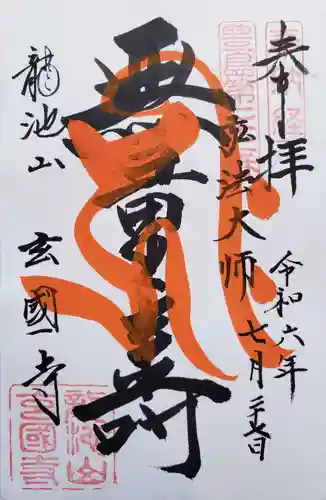 奉拝
令和六年
七月二十五日
弘法大師
無量寿
龍池山
玄國寺
龍池山
玄國寺